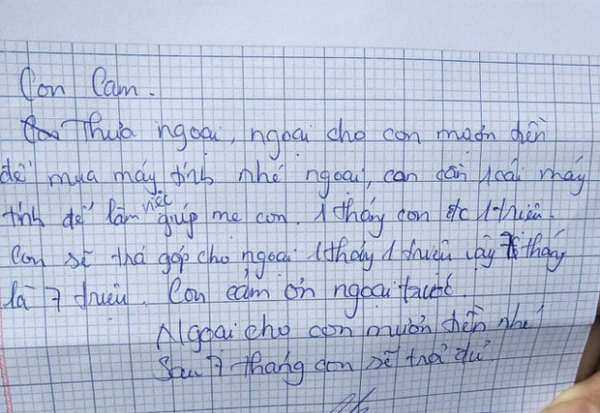 Con Cam.
Thưa ngoại, ngoại cho con mượn tiền
để mua máy tính nhé ngoại, con cần 1 cái máy
tính để làm việc giúp mẹ con. 1 tháng con đc 1 triệu.
Con sẽ trả góp cho ngoại 1 tháng 1 triệu vậy 7 tháng
là 7 triệu. Con cảm ơn ngoại trước.
Ngoại cho con mượn tiền nhé
Sau 7 tháng con sẽ trả đủ.